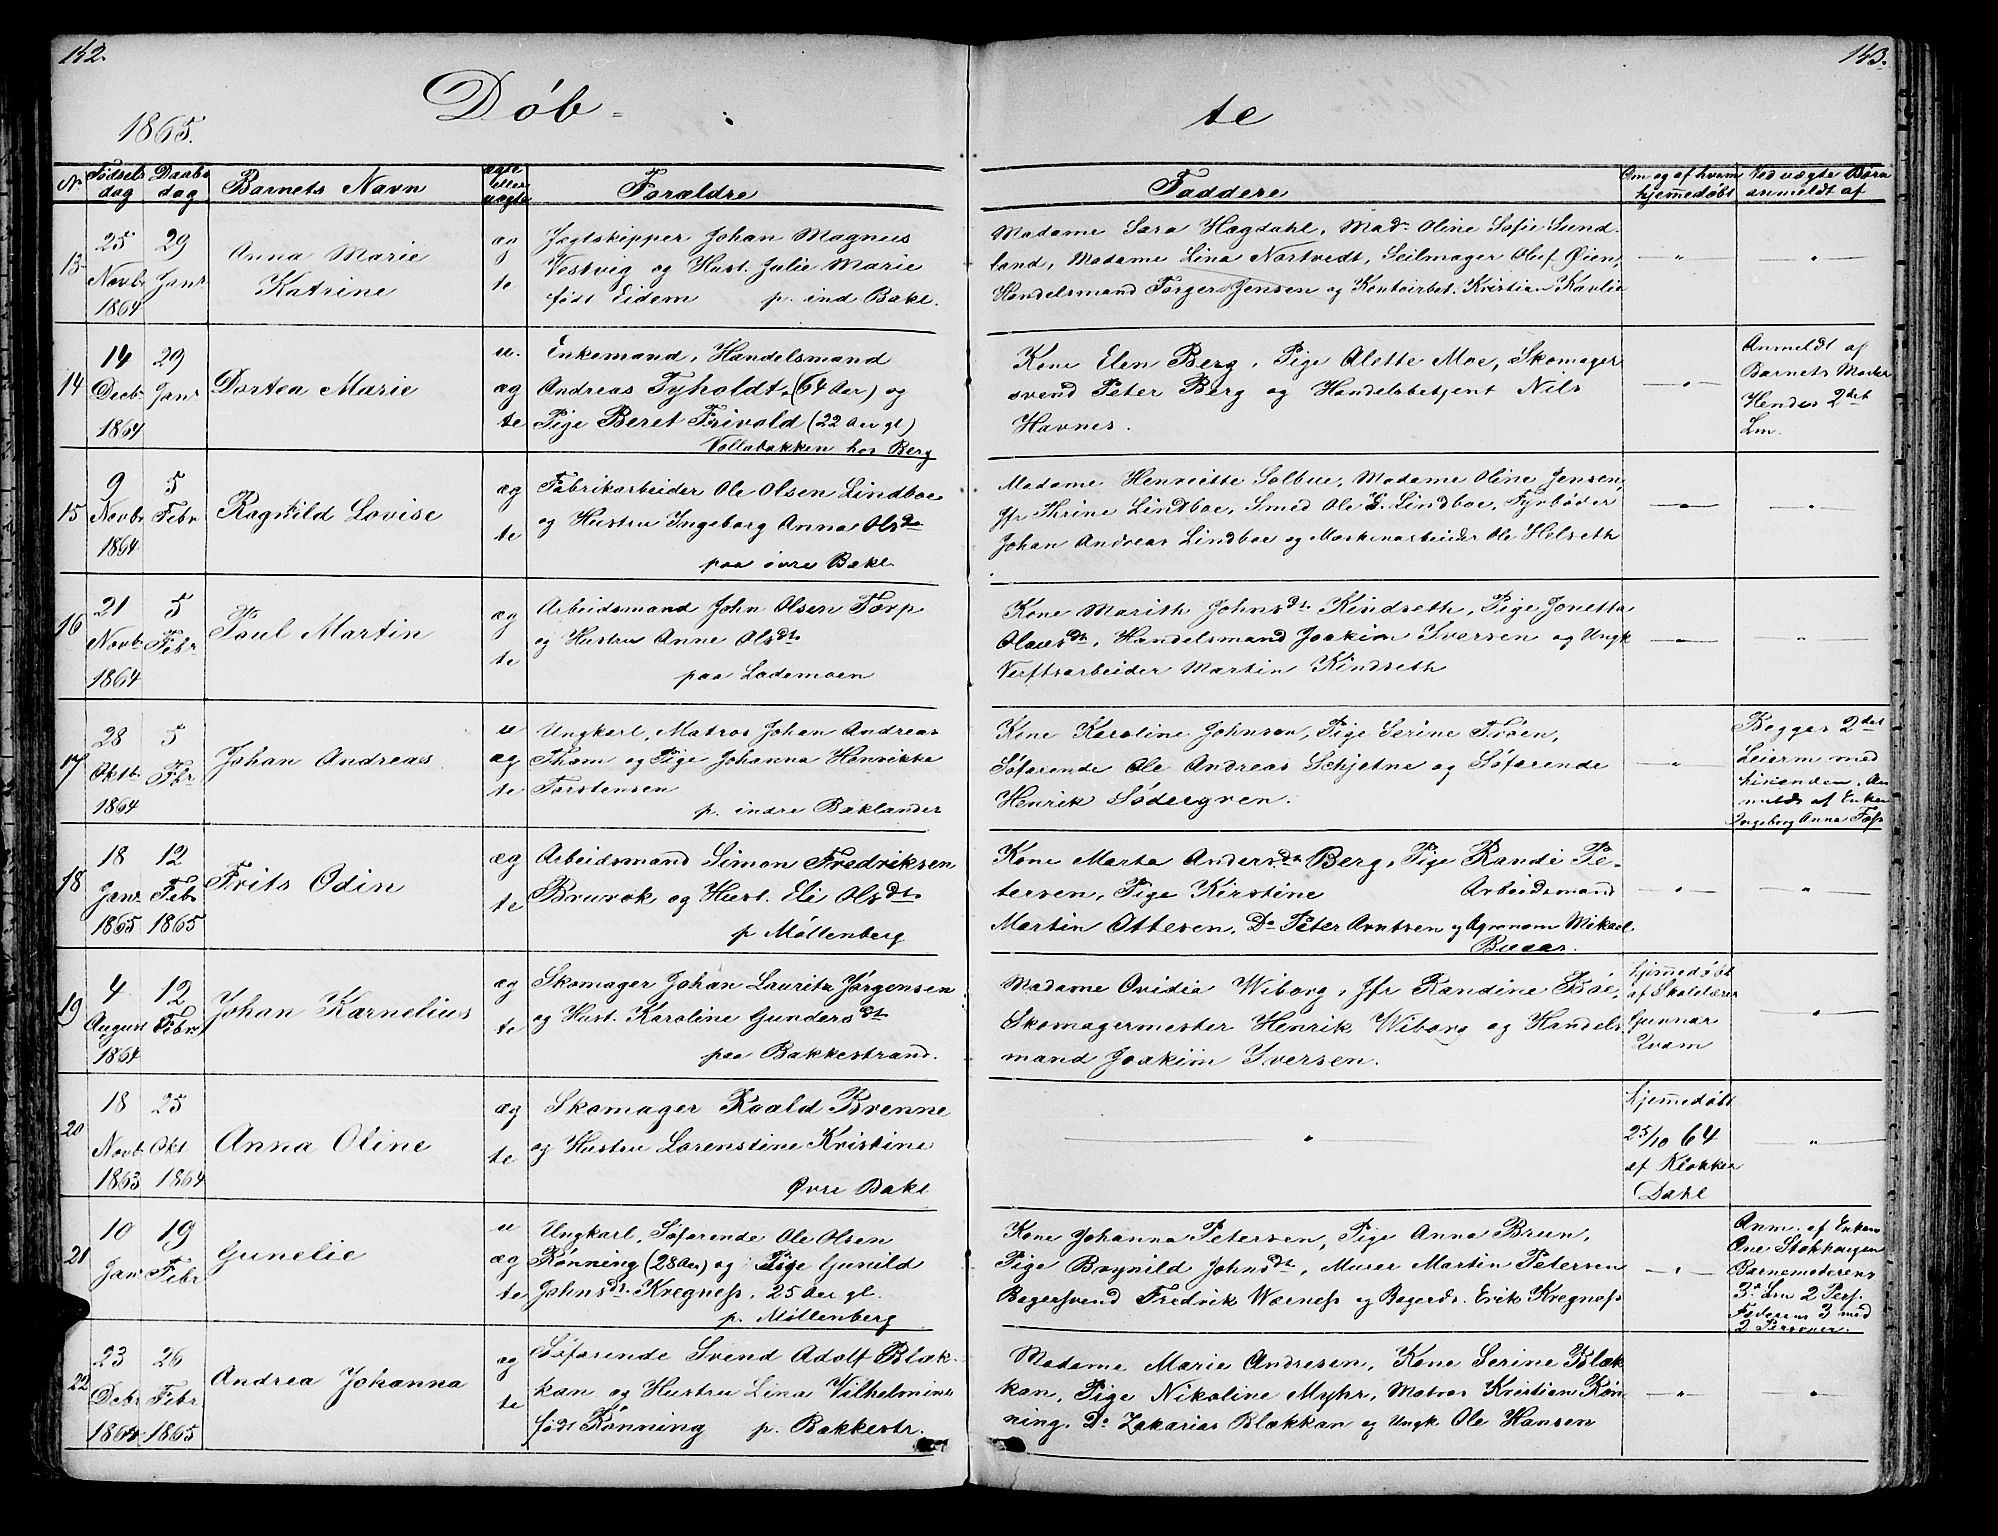 142.
143.
Døb-
te
1865.
No Fødsels dag Daabs dag Barnets Navn ægte eller uægte Forældre
Faddere Om og af hvem hjemmedøbt Ved uægte Børn anmeldt af
13 25 Novbr 1864 29 Janr
Anna Marie
Katrine
ægte
Jægtskipper Johan Magnus
Vestvig og Hust. Julie Marie
født Eidem p. ind Bakl.
Madame Sara Hagdahl, Madm Oline Sofie Sund-
land, Madame Lina Nortvedt, Seilmager Oluf Øien,
Handelsmand Torger Jensen og Kontoirbet. Kristian Kavlie
14 14 Decbr 1864 29 Janr
Dortea Marie
u.ægte
Enkemand, Handelsmand
Andreas Tyholdt, (64 Aar) og
Pige Beret Frivold (22 Aar gl)
Vollabakken hos Berg
Kone Elen Berg, Pige Alette Moe, Skomager
svend Peter Berg og Handelsbetjent Nils
Havnes.
Anmeldt af
Barnets Moder
Hendes 2det
Lm.
15 9 Novbr 1864 5 Febr
Ragnild Lovise
ægte
Fabrikarbeider Ole Olsen Lindboe
og Hustru Ingeborg Anna Olsdtr
paa øvre Bakl.
Madame Henriette Solbue, Madame Oline Jensen,
Jfr Thrine Lindboe, Smed Ole L. Lindboe, Fyrbøder
Johan Andreas Lindboe og Maskinarbeider Ole Helseth
16 21 Novbr 1864 5 Febr
Poul Martin
ægte
Arbeidsmand John Olsen Torp
og Hustru Anne Olsdtr
paa Lademoen
Kone Marith Johnsdtr Kindseth, Pige Jonetta
Olausdtr, Handelsmand Joakim Iversen og Ungk
Verftsarbeider Martin Kindseth
17 28 Oktbr 1864 5 Fbr
Johan Andreas
uægte
Ungkarl, Matros Johan Andreas
Thom og Pige Johanna Henrikke
Torstensen
p. indre Baklandet
Kone Karoline Johnsen, Pige Serine Troen,
Søfarende Ole Andreas Schjetne og Søfarende
Henrik Södergren.
Begges 2det
Leierm med
hinanden. An-
meldt af Enken
Ingeborg Anna Foss
18 18 Janr 1865 12 Febr 1865
Frits Odin
ægte
Arbeidsmand Simon Fredriksen
Brurok og Hust. Eli Olsdtr
p Møllenberg
Kone Marta Andersdtr Berg, Pige Randi Pe-
tersen, Pige Kirstine Arbeidsmand
Martin Ottesen, Do Peter Arntsen og Agronom Mikael
19 4 August 1864 12 Febr
Johan Karnelius
ægte
Skomager Johan Lauritz Jørgensen
og Hust. Karoline Gundersdtr
paa Bakkestrand.
Madame Ovidia Wiborg, Jfr Randine Boe,
Skomagermester Henrik Wiborg og Handels
mand Joakim Iversen.
hjemmedøbt
af Skolelærer
Gunnar
Kvam
20 18 Novb. 1863 25 Okt 1864
Anna Oline
ægte
Skomager Roald Brenne
og Hustru Lorenstine Kristine
Øvre Bakl
hjemmedøbt
25/10 64
af Klokker
Dahl
21 10 Janr 19 Febr
Gunelie
uægte
Ungkarl, Søfarende Ole Olsen
Rønning (28 Aar) og Pige Gunild
Johnsdtr Kregness, 25 Aar gl.
p. Møllenberg
Kone Johanna Petersen, Pige Anna Brun,
Pige Brynild Johnsdtr, Murer Martin Petersen
Bagersvend Fredrik Wærness og Bagerdr. Erik Kregness
Anm. af Enken
Ane Stokhaugen
Barnemoderens
3d Lm 2 Pers.
Faderens 3 med
2 Personer.
22 23 Debr 1864 26 Febr 1865
Andrea Johanna
ægte
Søfarende Svend Adolf Blæk-
kan og Hustru Lina Vilhelmine
født Rønning p. Bakkestr.
Madame Marie Andresen, Kone Serine Blæk
kan, Pige Nikoline Myhr, Matros Kristian Røn-
ning, Do Zakarias Blækkan og Ungk Ole Hansen